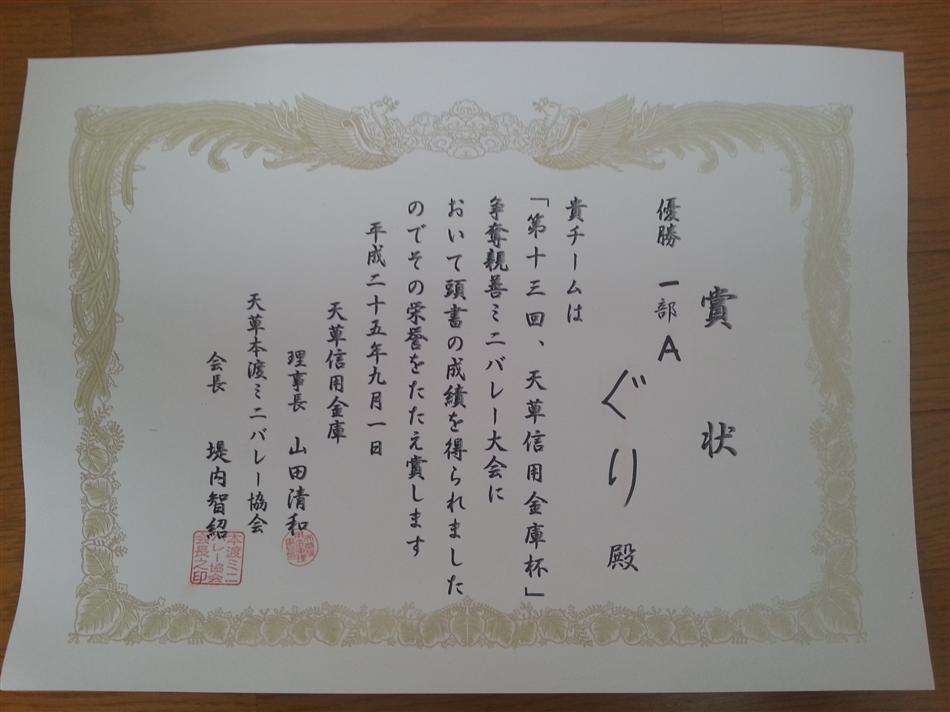 賞状
優勝 一部A
ぐり 殿
貴チームは
「第十三回、天草信用金庫杯」
争奪親善ミニバレー大会に
おいて頭書の成績を得られました
のでその栄誉をたたえ賞します
平成二十五年九月一日
天草信用金庫
理事長 山田清和
天草本渡ミニバレー協会
会長 堤内智紹
本渡ミニ
バレー協会
会長之印